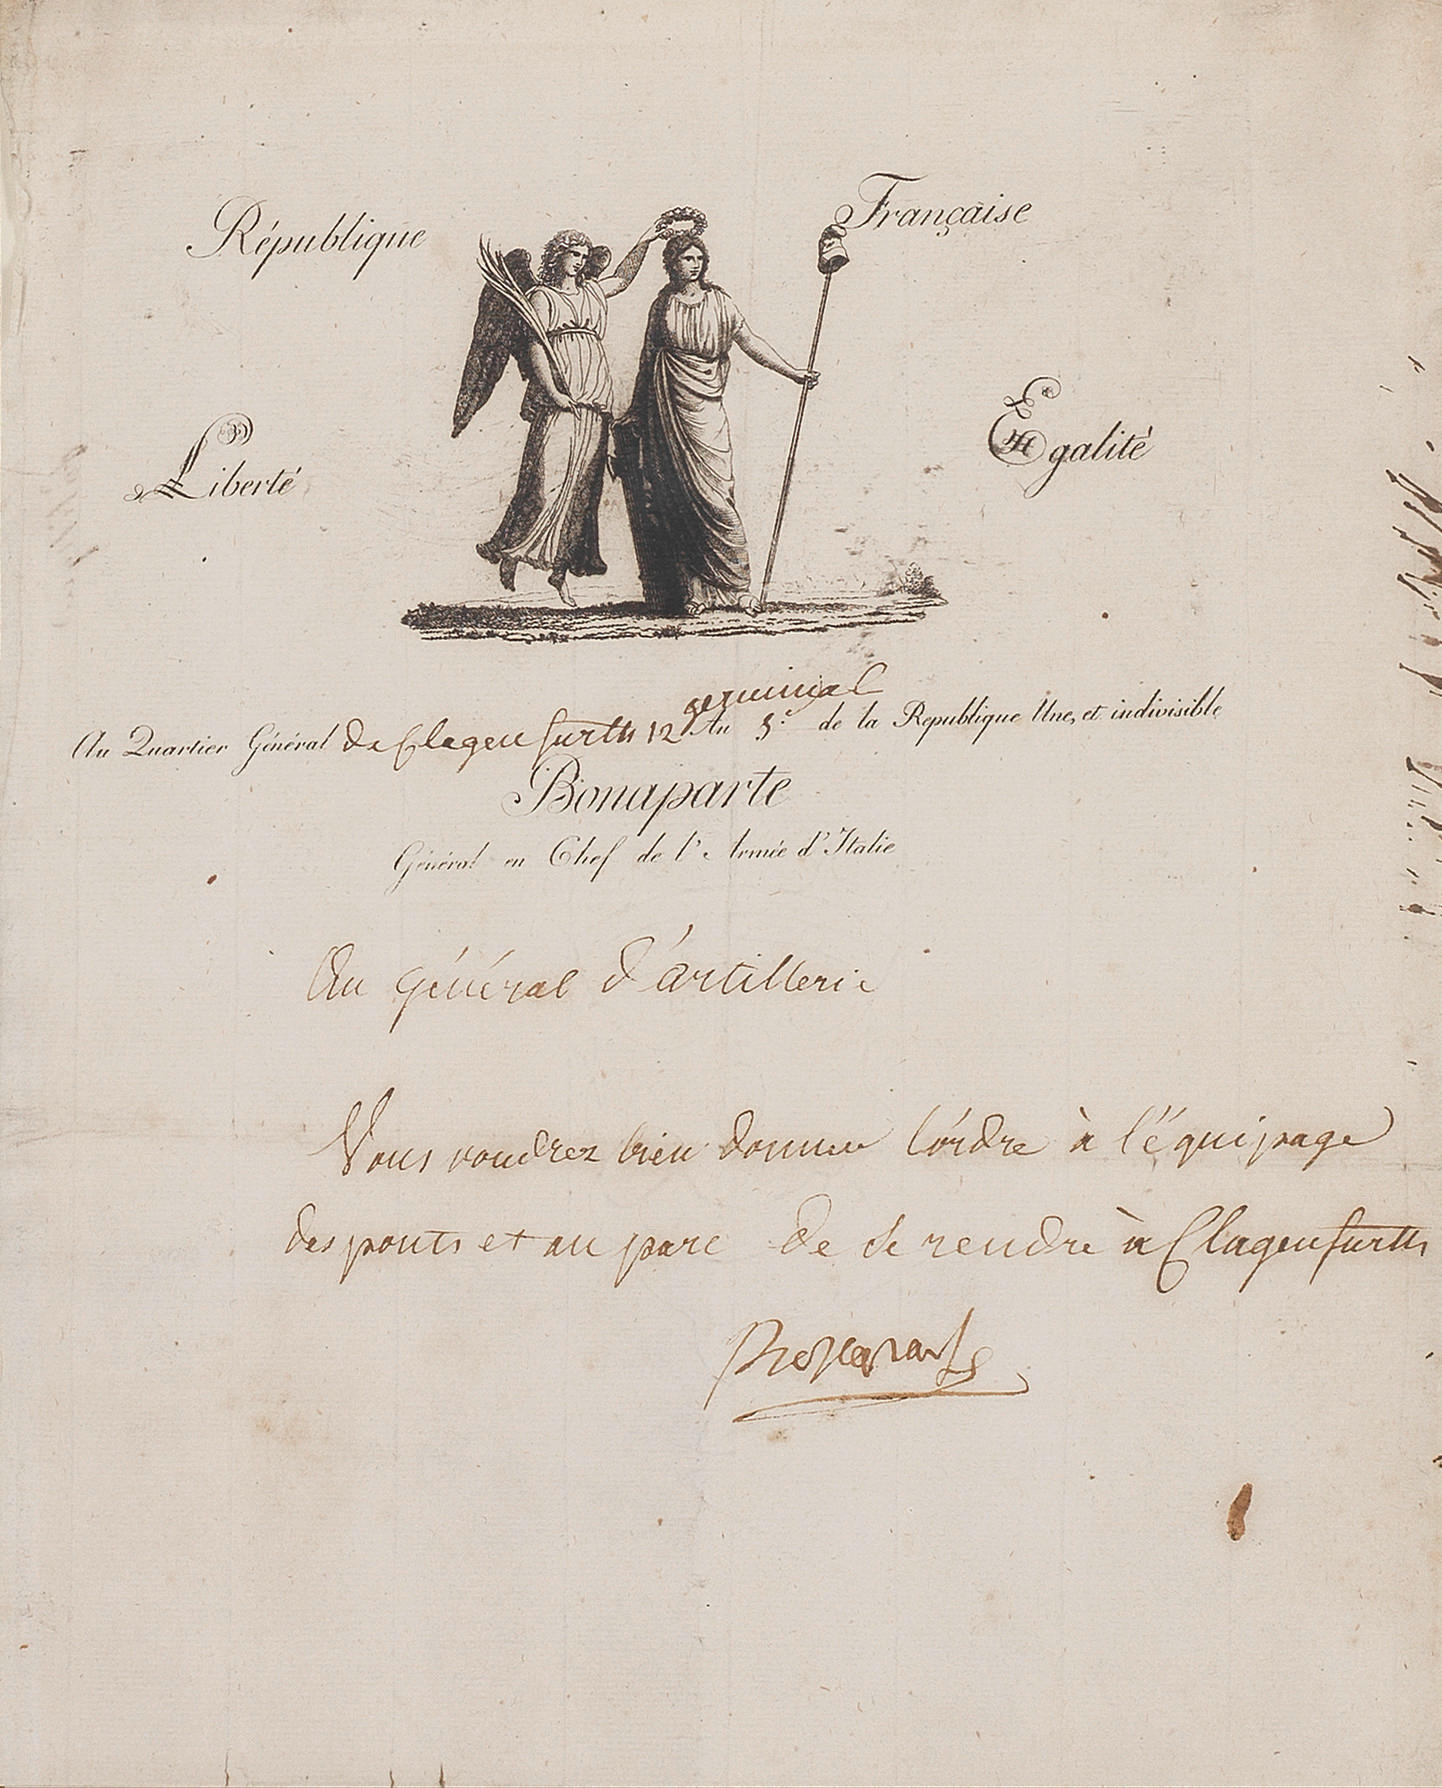 République Française
Liberté Egalité
germinal
Au Quartier Général de Clagenfurth 12 An 5.e de la Republique Une, et indivisible
Bonaparte
Général en Chef de l'Armée d'Italie
Au général d'artillerie
Vous voudrez bien donner l'ordre à l'équipage
des ponts et au parc de se rendre à Clagenfurth
Bonaparte